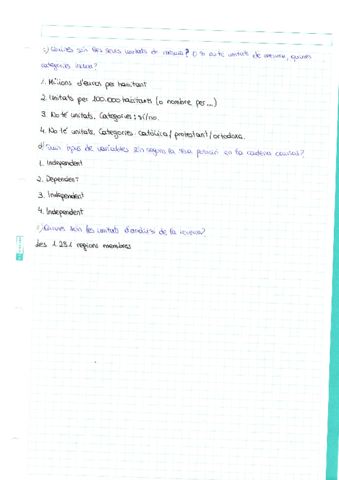 c) Quines són les seves unitats de mesura? O si no té unitats de mesura, quines
categories inclou?
1. Milions d'euros per habitant
2. Unitats per 100.000 habitants (o nombre per...)
3. No té unitats. Categories: sí/no.
4. No té unitats. Categories: catòlica/protestant/ortodoxa.
d) Quin tipus de variables són segons la seva posició en la cadena causal?
1. Independent
2. Dependent
3. Independent
4. Independent
Quines són les unitats d'anàlisi de la recerca?
Les 1.231 regions membres